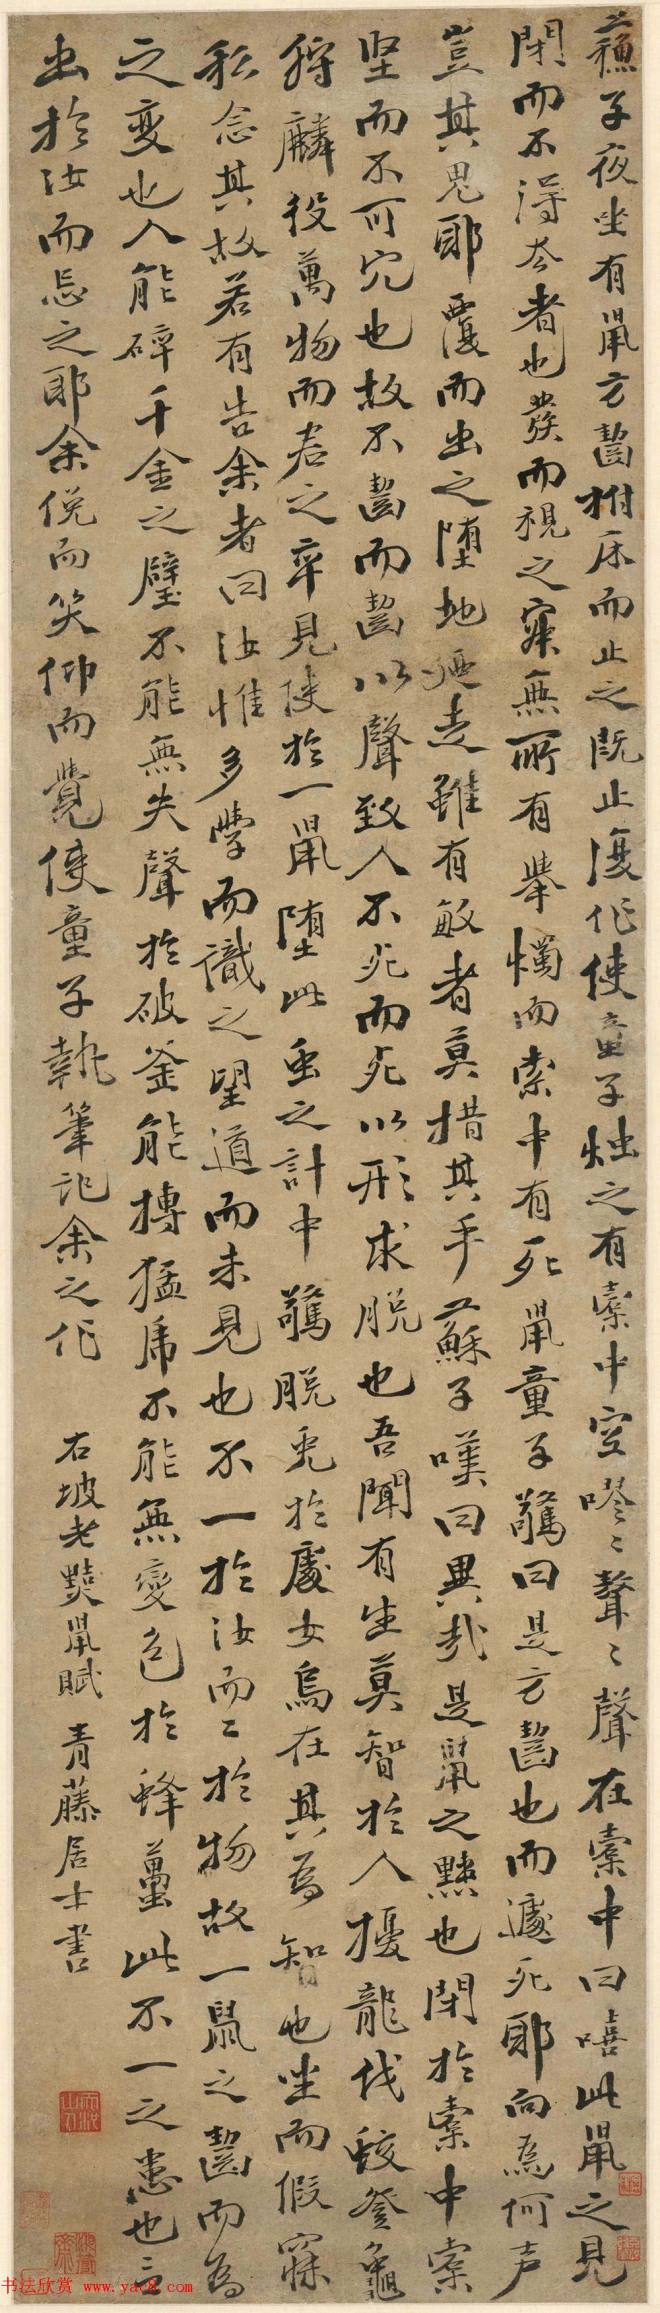 蘇子夜坐有鼠方齧拊床而止之既止復作使童子燭之有橐中空嘐〻聱〻聲在橐中曰嘻此鼠之見
閉而不得去者也發而視之寂無所有舉燭而索中有死鼠童子驚曰是方齧也而遽死耶向為何声
豈其鬼耶覆而出之墮地廼走雖有敏者莫措其手蘇子嘆曰異哉是鼠之黠也閉於橐中橐
堅而不可穴也故不齧而齧以聲致人不死而死以形求脱也吾聞有生莫智於人擾龍伐蛟登龜
狩麟役萬物而君之卒見使於一鼠墮此虫之計中驚脱兎於處女烏在其為智也坐而假寐
私念其故若有告余者曰汝惟多學而識之望道而未見也不一於汝而二於物故一鼠之齧而為
之变也人能碎千金之璧不能無失聲於破釜能搏猛虎不能無變色於蜂蠆此不一之患也言
出於汝而忘之耶余俛而笑仰而覺使童子執筆記余之作
右坡老黠鼠賦 青藤居士書
书法欣赏 www.yac8.com